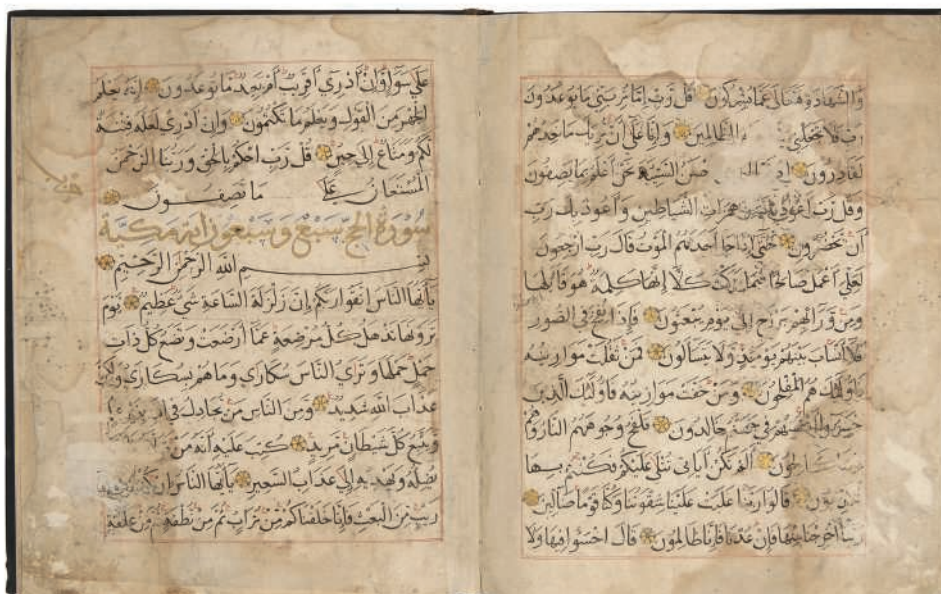 والشهادة فتعالى عما يشركون قل رب إما تريني ما يوعدون
رب فلا تجعلني الظالمين وإنا على أن نريك ما نعدهم
لقادرون السيئة نحن أعلم بما يصفون
وقل رب أعوذ بك من همزات الشياطين وأعوذ بك رب
أن يحضرون حتى إذا جا أحدهم الموت قال رب ارجعون
لعلي أعمل صالحا فيما تركت كلا إنها كلمة هو قائلها
ومن ورائهم برزخ إلى يوم يبعثون فإذا نفخ في الصور
فلا أنساب بينهم يومئذ ولا يتسالون فمن ثقلت موازينه
فأولئك هم المفلحون ومن خفت موازينه فأولئك الذين
خسروا أنفسهم في جهنم خالدون تلفح وجوههم النار وهم
كالحون ألم تكن آياتي تتلى عليكم فكنتم بها
تكذبون قالوا ربنا غلبت علينا شقوتنا وكنا قوما ضالين
ربنا أخرجنا منها فإن عدنا فإنا ظالمون قال اخسئوا فيها ولا
على سواء وإن أدري أقريب أم بعيد ما توعدون إنه يعلم
الجهر من القول ويعلم ما تكتمون وإن أدري لعله فتنة
لكم ومتاع إلى حين قل رب احكم بالحق وربنا الرحمن
المستعان على ما تصفون
سورة الحج سبع وسبعون آية مكية
بسم الله الرحمن الرحيم
يأيها الناس اتقوا ربكم إن زلزلة الساعة شي عظيم يوم
ترونها تذهل كل مرضعة عما أرضعت وتضع كل ذات
حمل حملها وترى الناس سكارى وما هم بسكارى ولكن
عذاب الله شديد ومن الناس من يجادل في الله بغير
ويتبع كل شيطان مريد كتب عليه أنه من
يضله ويهديه إلى عذاب السعير يأيها الناس إن كنتم في
ريب من البعث فإنا خلقناكم من تراب ثم من نطفة ثم من علقة